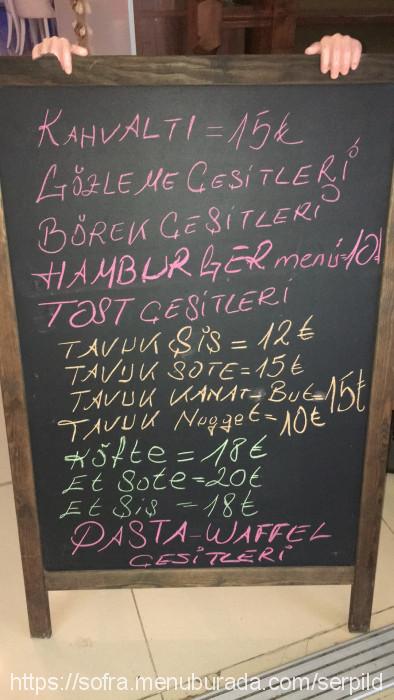 KAHVALTI = 15₺
GÖZLEME ÇEŞİTLERİ
BÖREK ÇEŞİTLERİ
HAMBURGER menü=10₺
TOST ÇEŞİTLERİ
TAVUK ŞİŞ = 12₺
TAVUK SOTE = 15₺
TAVUK KANAT-But=15₺
TAVUK Nugget=10₺
Köfte = 18₺
Et Sote=20₺
Et Şiş = 18₺
PASTA-WAFFEL
ÇEŞİTLERİ
https://sofra.menuburada.com/serpild